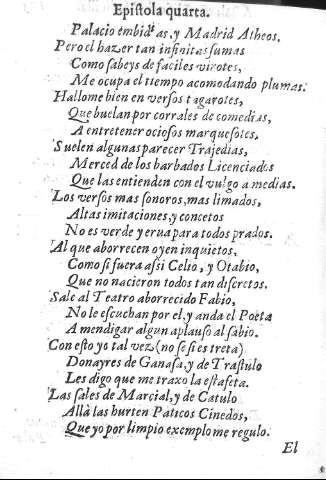 Epiſtola quarta.
Palacio embidias, y Madrid Atheos.
Pero el hazer tan infinitas ſumas
Como ſabeys de faciles virotes,
Me ocupa el tiempo acomodando plumas.
Hallome bien en verſos tagarotes,
Que buelan por corrales de comedias,
A entretener ocioſos marqueſotes.
Suelen algunas parecer Trajedias,
Merced de los barbados Licenciados
Que las entienden con el vulgo a medias.
Los verſos mas ſonoros, mas limados,
Altas imitaciones, y concetos
No es verde y erua para todos prados.
Al que aborrecen oyen inquietos,
Como ſi fuera aſsi Celio, y Otabio,
Que no nacieron todos tan diſcretos.
Sale al Teatro aborrecido Fabio,
No le eſcuchan por el, y anda el Poeta
A mendigar algun aplauſo al ſabio.
Con eſto yo tal vez (no ſe ſi es treta)
Donayres de Ganaſa, y de Traſtulo
Les digo que me traxo la eſtafeta.
Las ſales de Marcial, y de Catulo
Allà las hurten Paticos Cinedos,
Que yo por limpio exemplo me regulo.
El